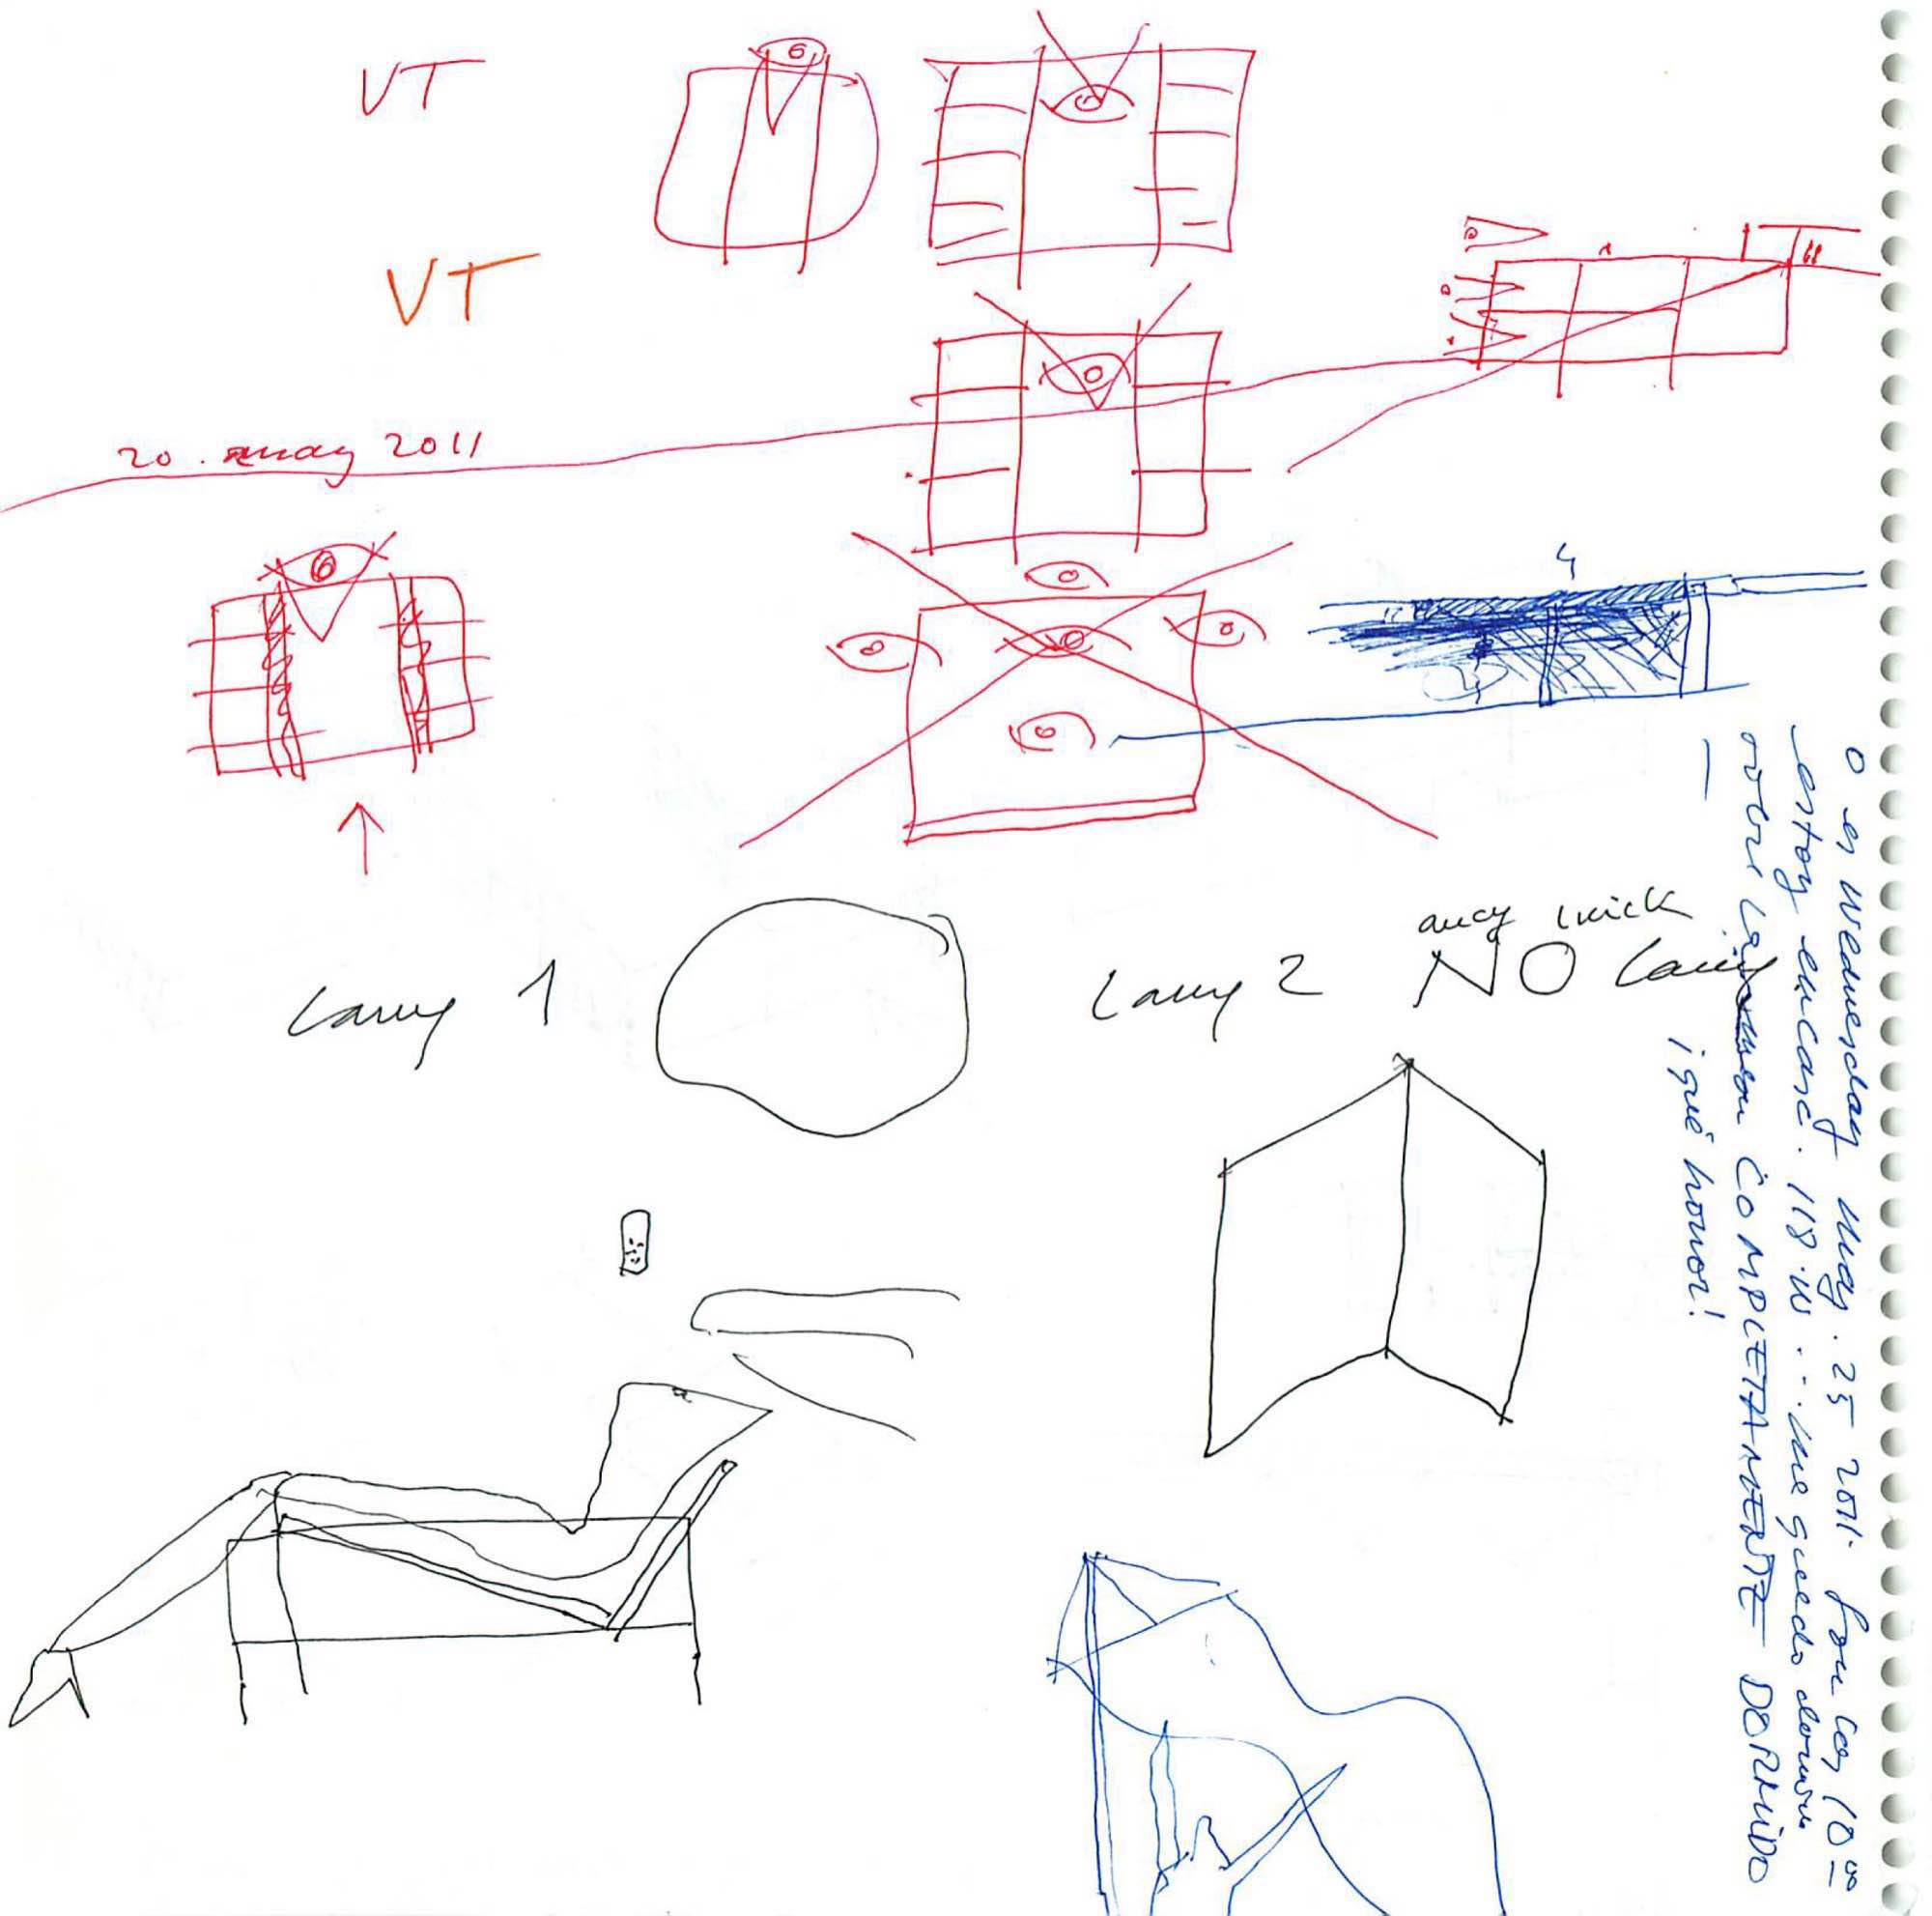 VT
VT
20. may 2011
4
Larry 1
Larry 2
NO Larry
o es Wednesday May. 25 2011. son las 10 00
estoy en casa. 118. W ... me quedo dormido
sobre COMPLETAMENTE DORMIDO
¡qué horror!